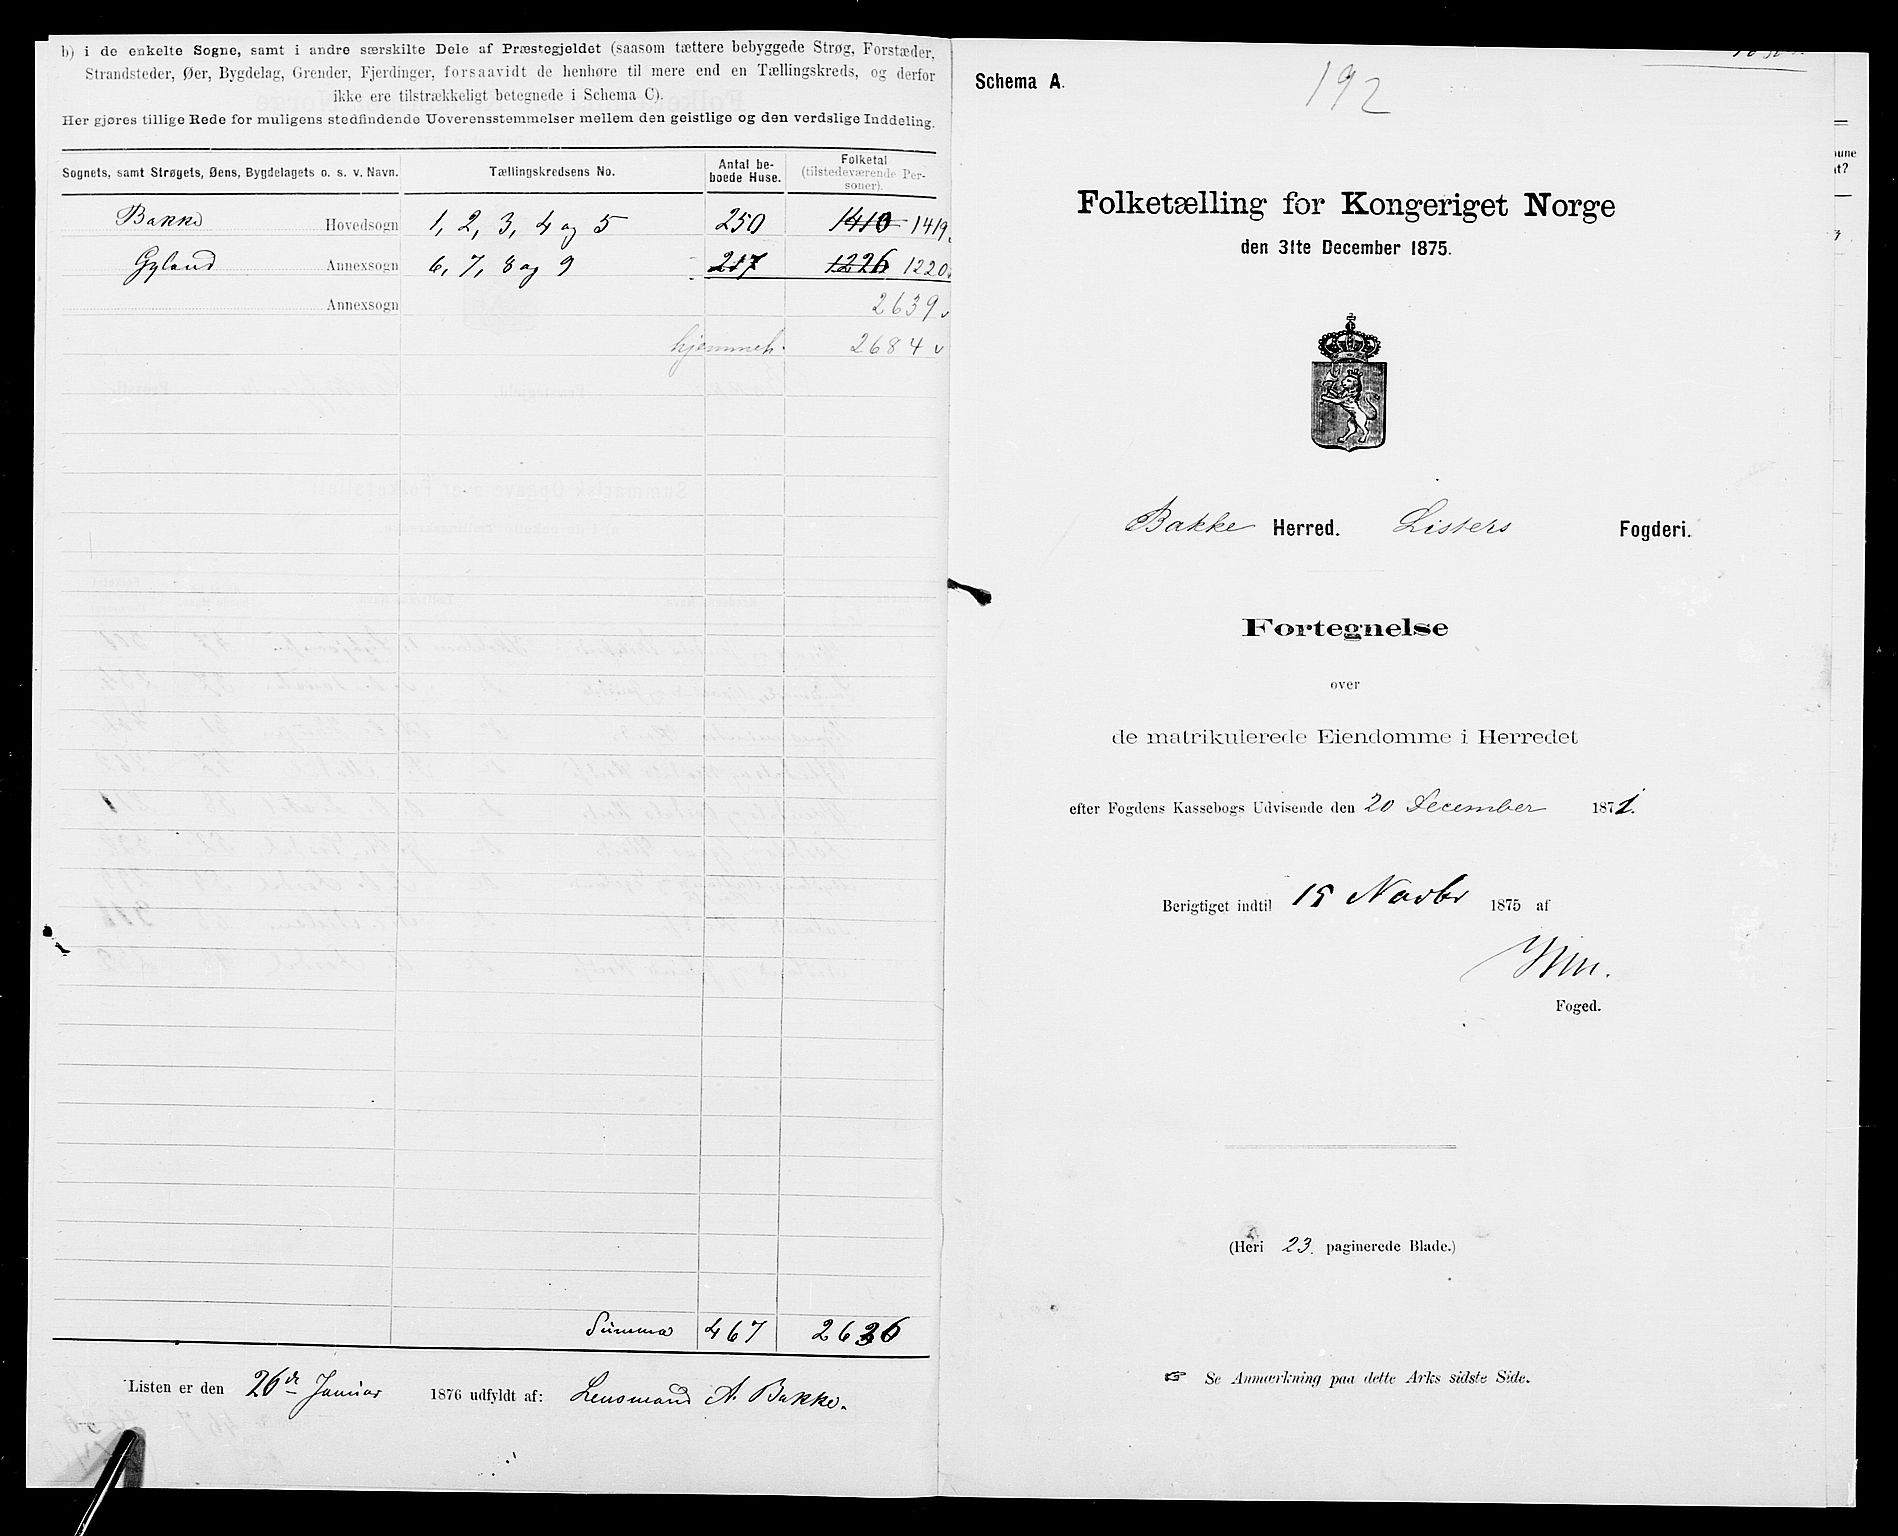 b) i de enkelte Sogne, samt i andre særskilte Dele af Præstegjeldet (saasom tættere bebyggede Strøg, Forstæder,
Strandsteder, Øer, Bygdelag, Grender, Fjerdinger, forsaavidt de henhøre til mere end en Tællingskreds, og derfor
ikke ere tilstrækkeligt betegnede i Schema C).
Her gjøres tillige Rede for muligens stedfindende Uoverensstemmelser mellem den geistlige og den verdslige Inddeling.
Sognets, samt Strøgets, Øens, Bygdelagets o. s. v. Navn. Tællingskredsens No. Antal be-
boede Huse. Folketal
(tilstedeværende Per-
soner).
Bakke Hovedsogn 1, 2, 3, 4 og 5 250 1410 1419
Gyland Annexsogn 6, 7, 8 og 9 217 1226 1220
Annexsogn 2639
hjemmeh. 2684
Summa 467 2636
Listen er den 26de Januar 1876 udfyldt af: Lensmand A. Bakke.
Schema A.
192
Folketælling for Kongeriget Norge
den 31te December 1875.
Bakke Herred. Listers Fogderi.
Fortegnelse
over
de matrikulerede Eiendomme i Herredet
efter Fogdens Kassebogs Udvisende den 20 December 1871.
Berigtiget indtil 15 Novbr 1875 af
Foged.
(Heri 23. paginerede Blade.)
☞ Se Anmærkning paa dette Arks sidste Side.